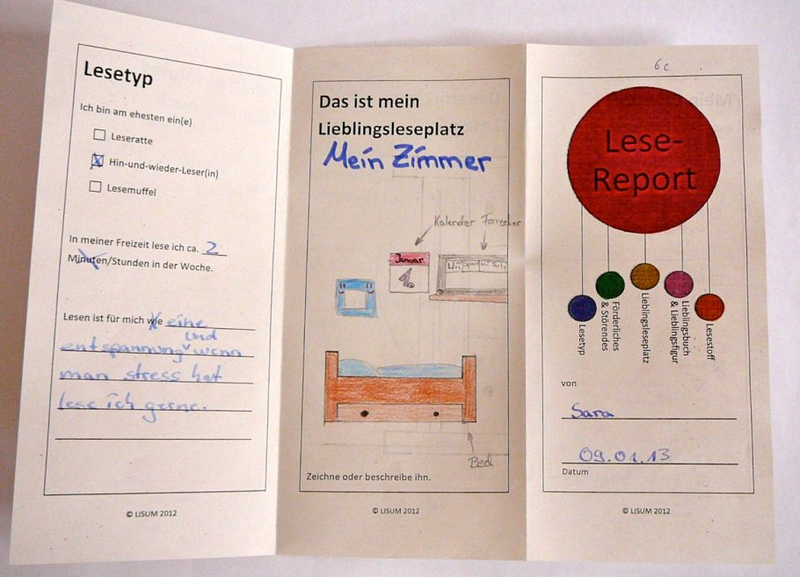 Lesetyp
Ich bin am ehesten ein(e)
Leseratte
Hin-und-wieder-Leser(in)
Lesemuffel
In meiner Freizeit lese ich ca. 2
Minuten/Stunden in der Woche.
Lesen ist für mich wie eine
und
entspannung wenn
man stress hat
lese ich gerne.
© LISUM 2012
Das ist mein
Lieblingsleseplatz
Mein Zimmer
Kalender
Januar
1.
Bed
Zeichne oder beschreibe ihn.
© LISUM 2012
6c
Lese-
Report
Lesetyp
Förderliches
& Störendes
Lieblingsleseplatz
Lieblingsbuch
& Lieblingsfigur
Lesestoff
von
Sara
09.01.13
Datum
© LISUM 2012